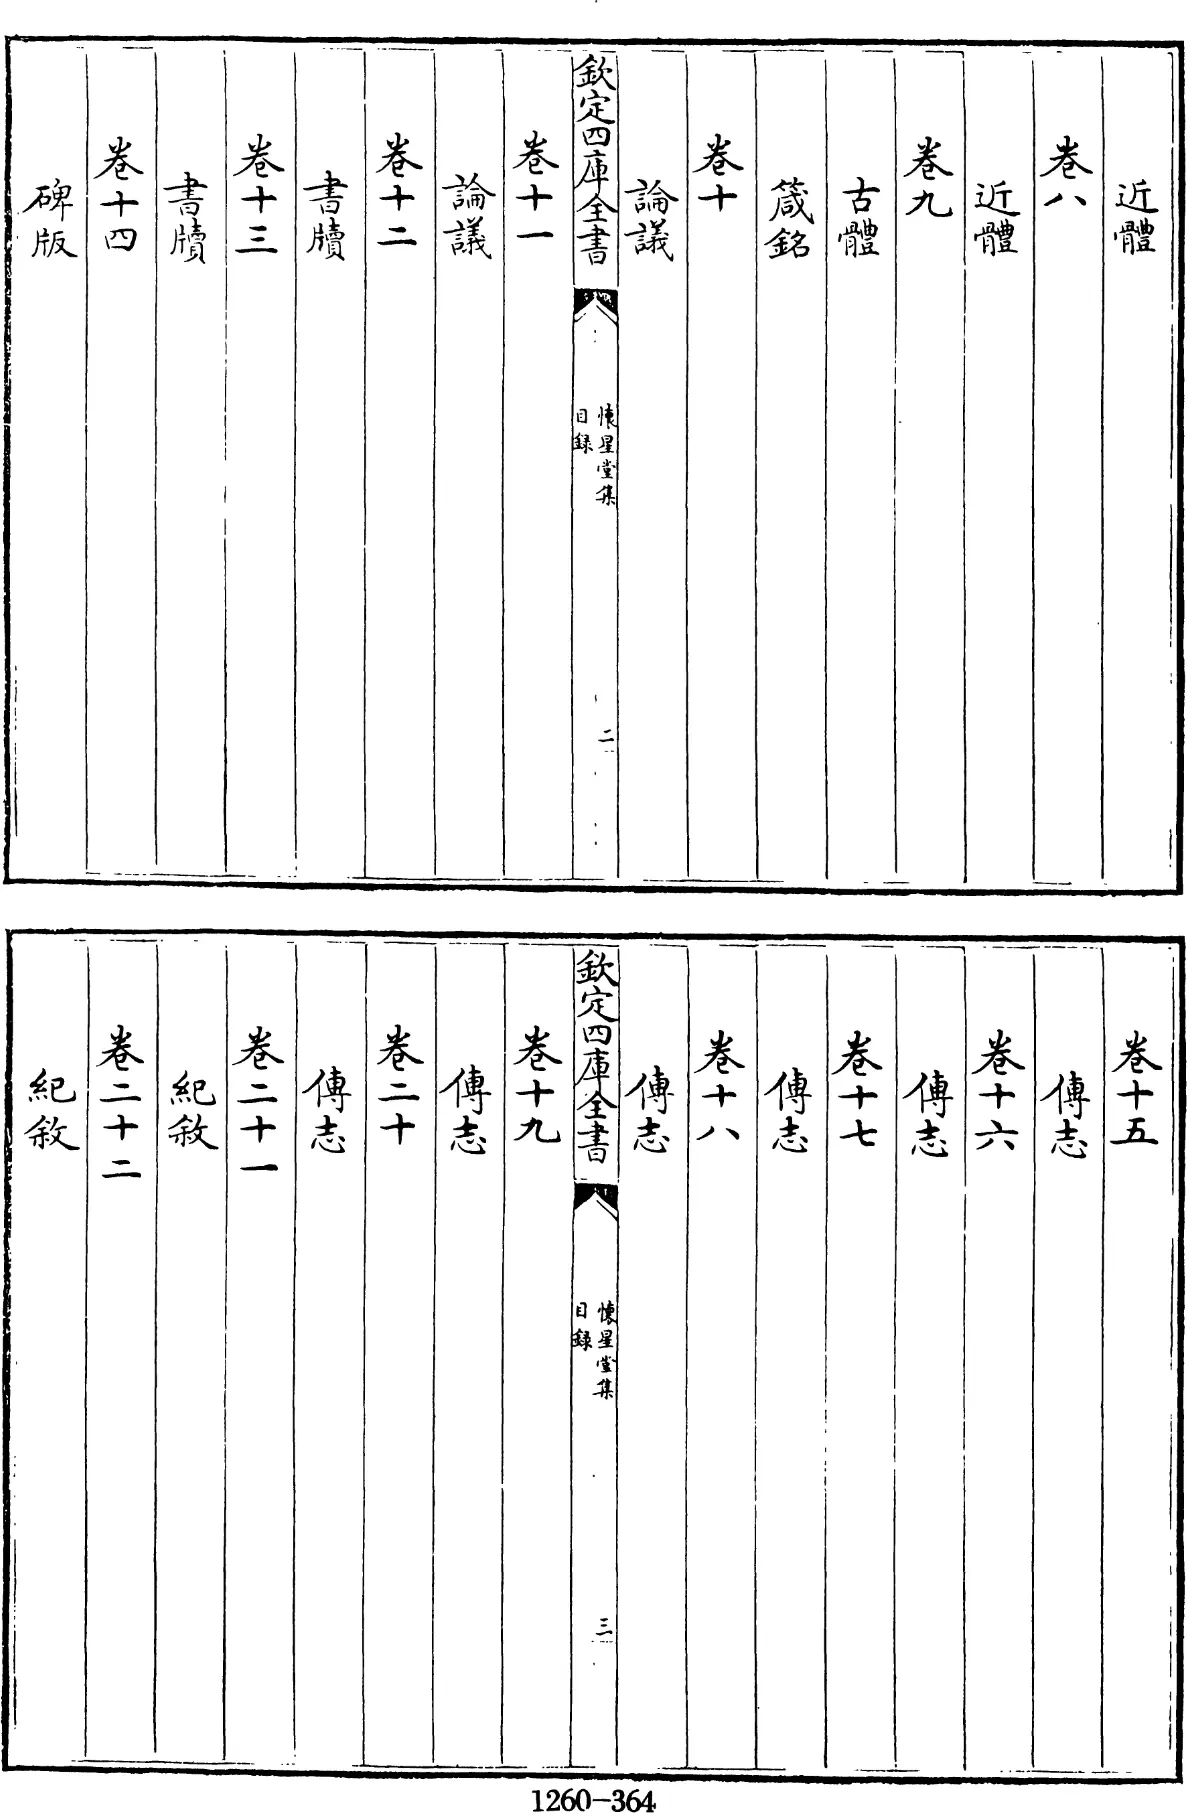 近體
卷八
近體
卷九
古體
箴銘
卷十
論議
欽定四庫全書
懷星堂集
目錄
二
卷十一
論議
卷十二
書牘
卷十三
書牘
卷十四
碑版
卷十五
傳志
卷十六
傳志
卷十七
傳志
卷十八
傳志
欽定四庫全書
懷星堂集
目錄
三
卷十九
傳志
卷二十
傳志
卷二十一
紀敘
卷二十二
紀敘
1260-364